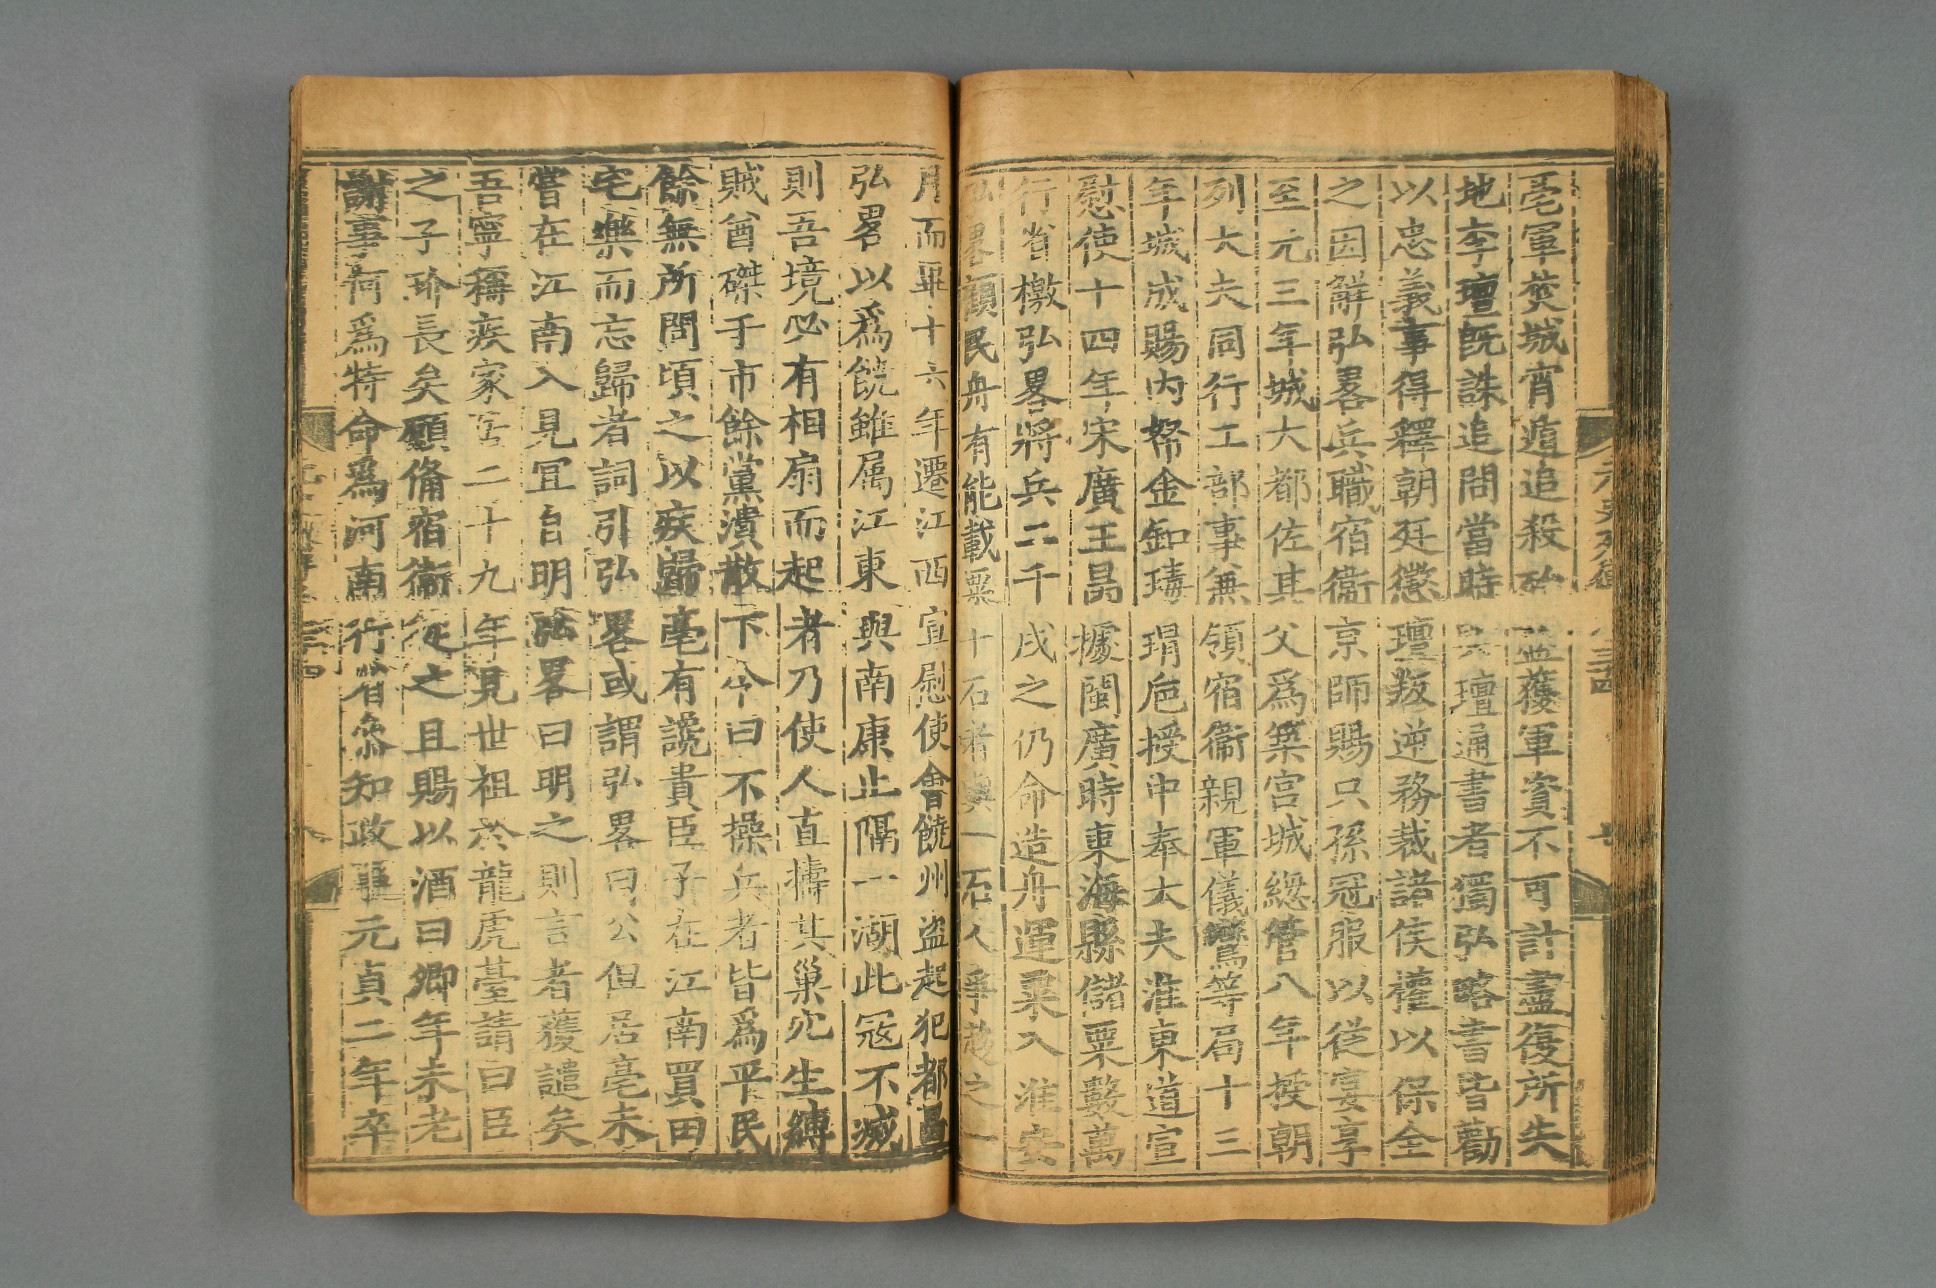 亳軍焚城宵遁追殺殆盡獲軍資不可計盡復所失
地李璮旣誅追問當時與璮通書者獨弘略書皆勸
以忠義事得釋朝廷懲璮叛逆務裁諸侯權以保全
之因解弘畧兵職宿衞京師賜只孫冠服以從宴享
至元三年城大都佐其父爲築宮城緫管八年授朝
列大夫同行工部事兼領宿衞親軍儀鸞等局十三
年城成賜内帑金釦瑇瑁卮授中奉大夫淮東道宣
慰使十四年宋廣王昺據閩廣時東海縣儲粟數萬
行省檄弘畧將兵二千戍之仍命造舟運粟入淮安
弘畧顧民舟有能載粟十石者與一石人爭趨之一
月而畢十六年遷江西宣慰使會饒州盜起犯都昌
弘畧以爲饒雖属江東與南康止隔一湖此冦不滅
則吾境必有相扇而起者乃使人直擣其巢穴生縛
賊酋磔于市餘黨潰散下令曰不操兵者皆爲平民
餘無所問頃之以疾歸亳有讒貴臣子在江南買田
宅樂而忘歸者詞引弘畧或謂弘畧曰公但居亳未
嘗在江南入見冝自明弘畧曰明之則言者獲譴矣
吾寧稱疾家居二十九年見世祖於龍虎臺請曰臣
之子玠長矣願備宿衞從之且賜以酒曰卿年未老
謝事何爲特命爲河南行省叅知政事元貞二年卒